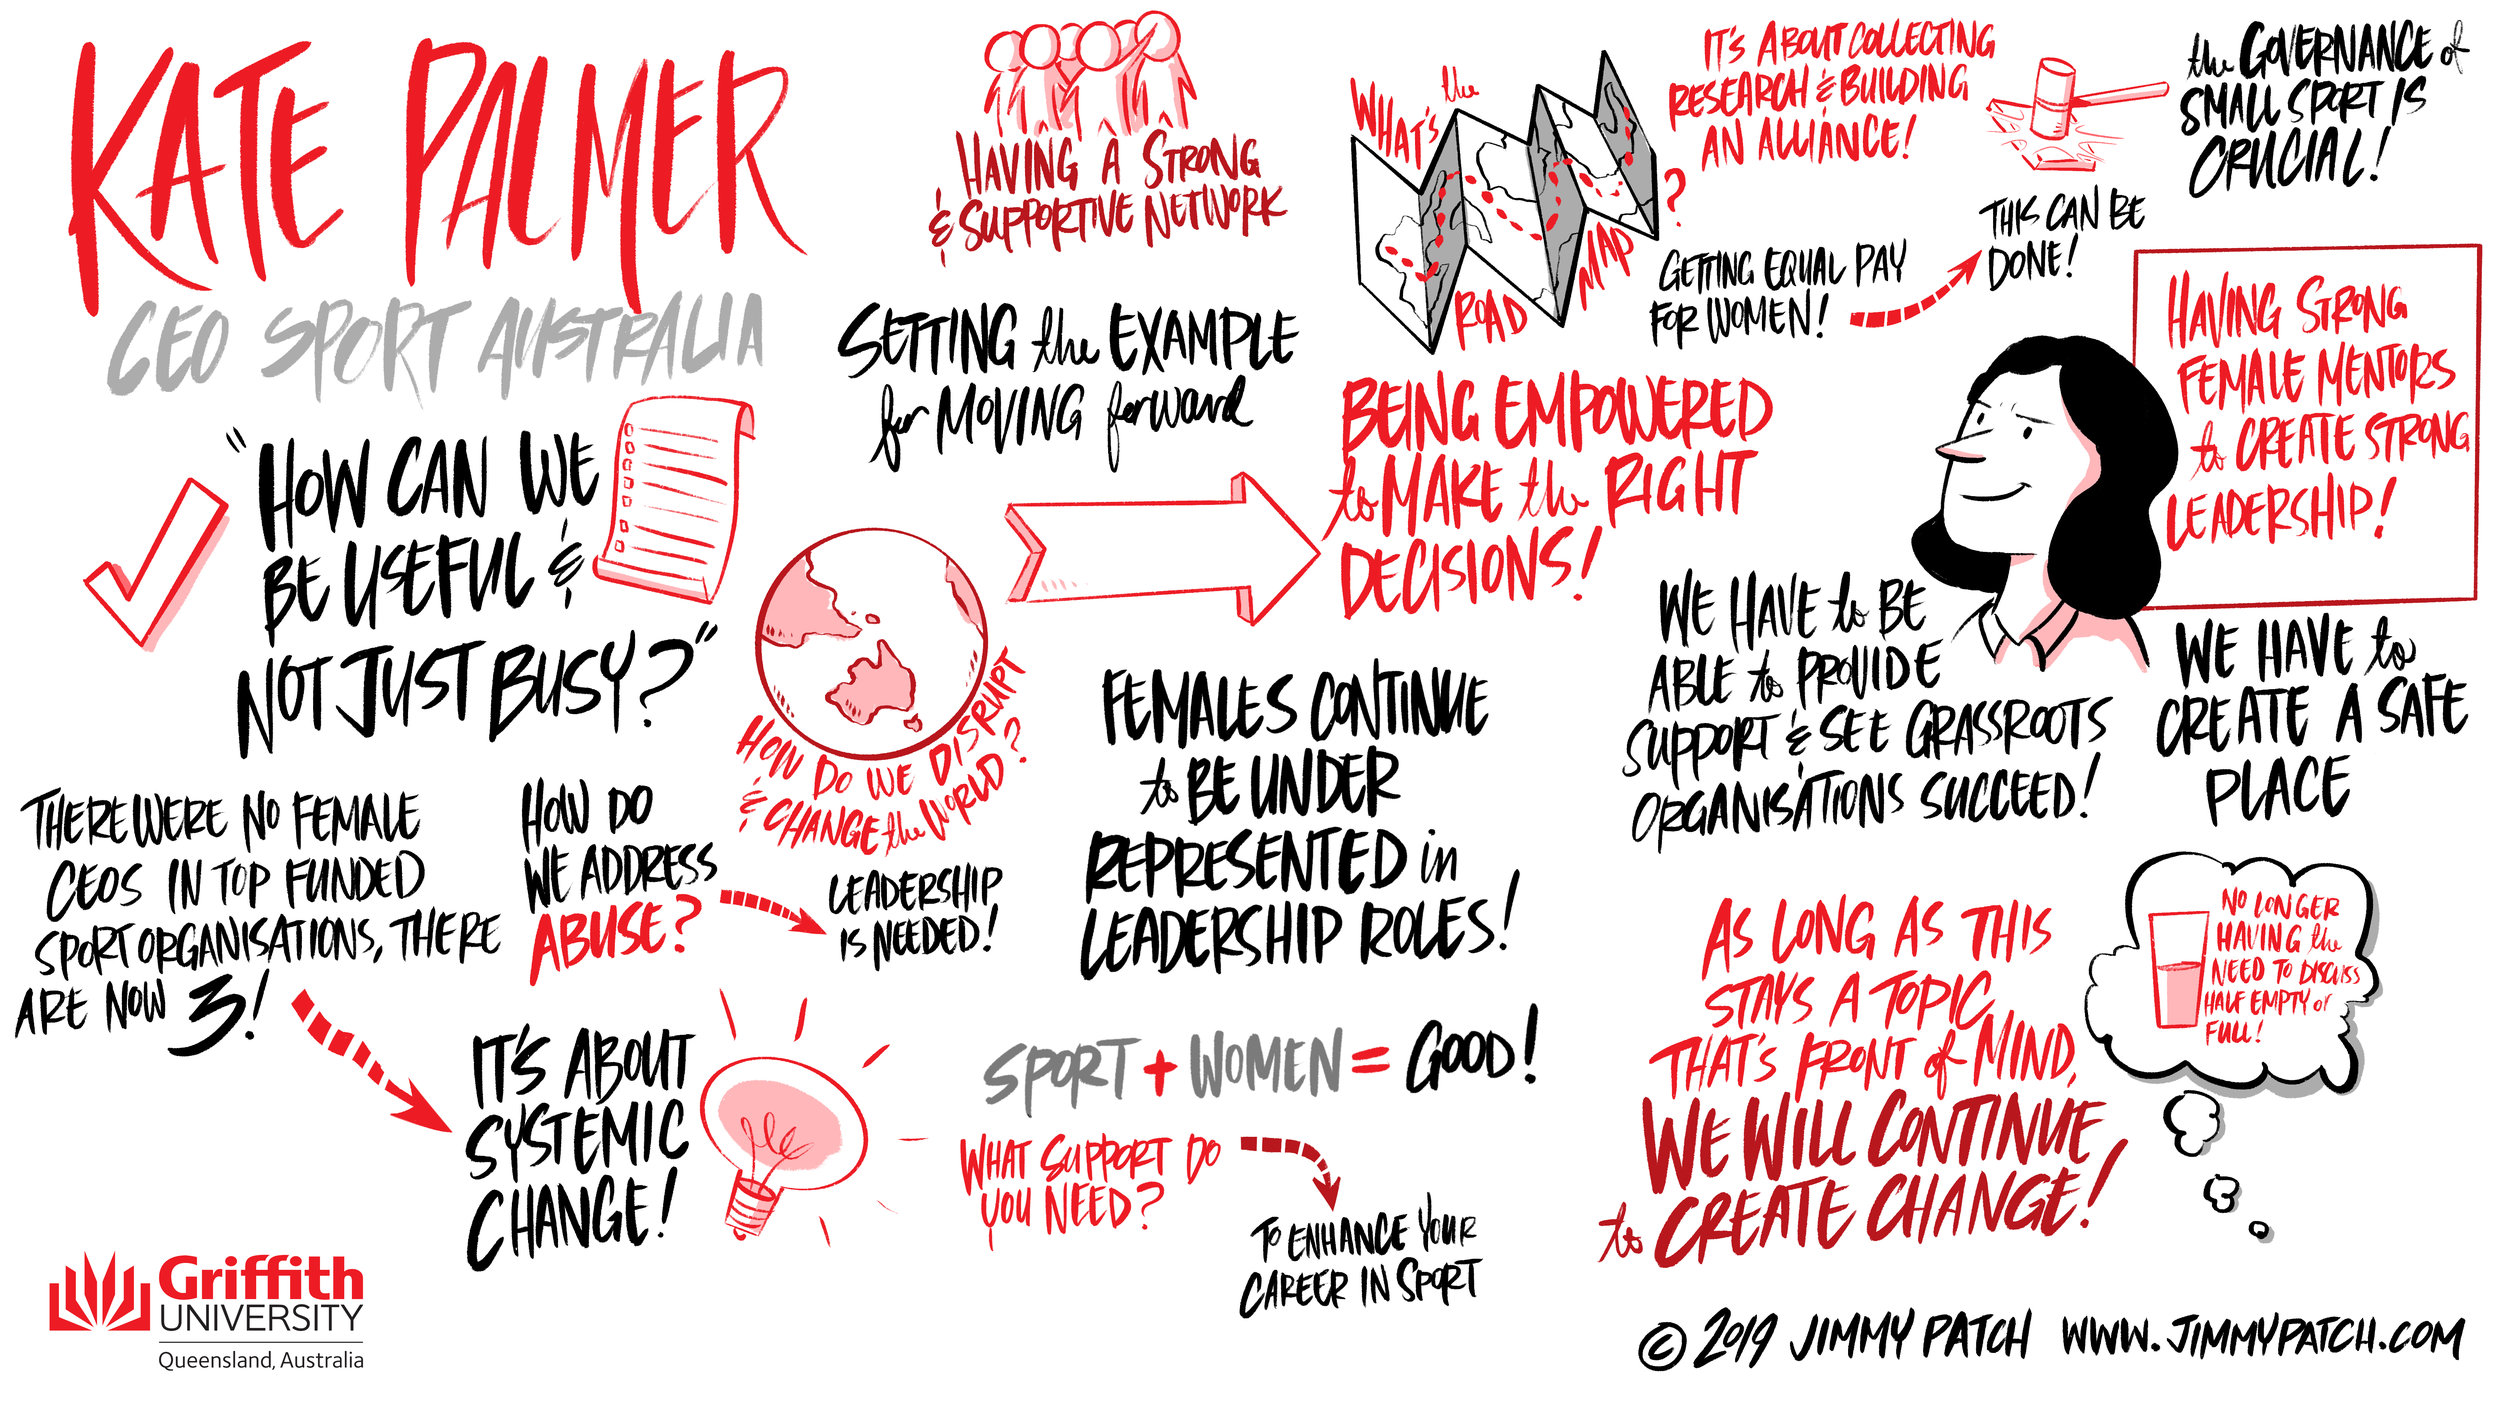 KATE PALMER
CEO SPORT AUSTRALIA
"HOW CAN WE
BE USEFUL &
NOT JUST BUSY?"
THERE WERE NO FEMALE
CEOS IN TOP FUNDED
SPORT ORGANISATIONS, THERE
ARE NOW 3!
HOW DO
WE ADDRESS
ABUSE?
LEADERSHIP
IS NEEDED!
IT'S ABOUT
SYSTEMIC
CHANGE!
HAVING A STRONG
& SUPPORTIVE NETWORK
SETTING the EXAMPLE
for MOVING forward
HOW DO WE DISRUPT
& CHANGE the WORLD?
BEING EMPOWERED
to MAKE the RIGHT
DECISIONS!
FEMALES CONTINUE
to BE UNDER
REPRESENTED in
LEADERSHIP ROLES!
SPORT + WOMEN = GOOD!
WHAT SUPPORT DO
YOU NEED?
TO ENHANCE YOUR
CAREER IN SPORT
WHAT'S the
ROAD MAP?
IT'S ABOUT COLLECTING
RESEARCH & BUILDING
AN ALLIANCE!
the GOVERNANCE of
SMALL SPORT IS
CRUCIAL!
GETTING EQUAL PAY
FOR WOMEN!
THIS CAN BE
DONE!
HAVING STRONG
FEMALE MENTORS
to CREATE STRONG
LEADERSHIP!
WE HAVE to BE
ABLE to PROVIDE
SUPPORT & SEE GRASSROOTS
ORGANISATIONS SUCCEED!
WE HAVE to
CREATE A SAFE
PLACE
AS LONG AS THIS
STAYS A TOPIC
THAT'S FRONT of MIND,
WE WILL CONTINUE
to CREATE CHANGE!
NO LONGER
HAVING the
NEED TO DISCUSS
HALF EMPTY or
FULL!
Griffith
UNIVERSITY
Queensland, Australia
© 2019 JIMMY PATCH WWW.JIMMYPATCH.COM